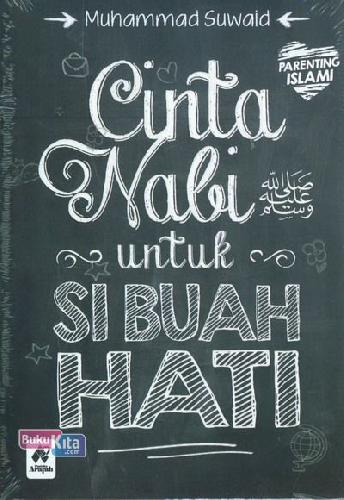 Muhammad Suwaid
PARENTING
ISLAMI
Cinta
Nabi
صلى الله
عليه
وسلم
untuk
SI BUAH
HATI
Buku
Kita
.com